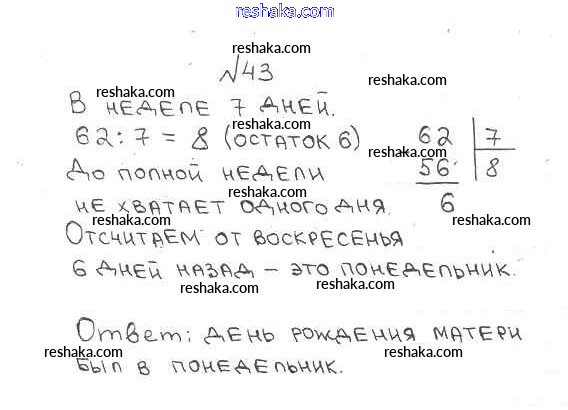 reshaka.com
reshaka.com
№43
reshaka.com
reshaka.com
В НЕДЕЛЕ 7 ДНЕЙ.
reshaka.com
62:7 = 8 (ОСТАТОК 6) 62 7
reshaka.com
ДО ПОЛНОЙ НЕДЕЛИ 56 8
reshaka.com
НЕ ХВАТАЕТ ОДНОГО ДНЯ. 6
reshaka.com reshaka.com
ОТСЧИТАЕМ ОТ ВОСКРЕСЕНЬЯ
6 ДНЕЙ НАЗАД – ЭТО ПОНЕДЕЛЬНИК.
reshaka.com reshaka.com
Ответ: ДЕНЬ РОЖДЕНИЯ МАТЕРИ
reshaka.com reshaka.com
БЫЛ В ПОНЕДЕЛЬНИК.
reshaka.com